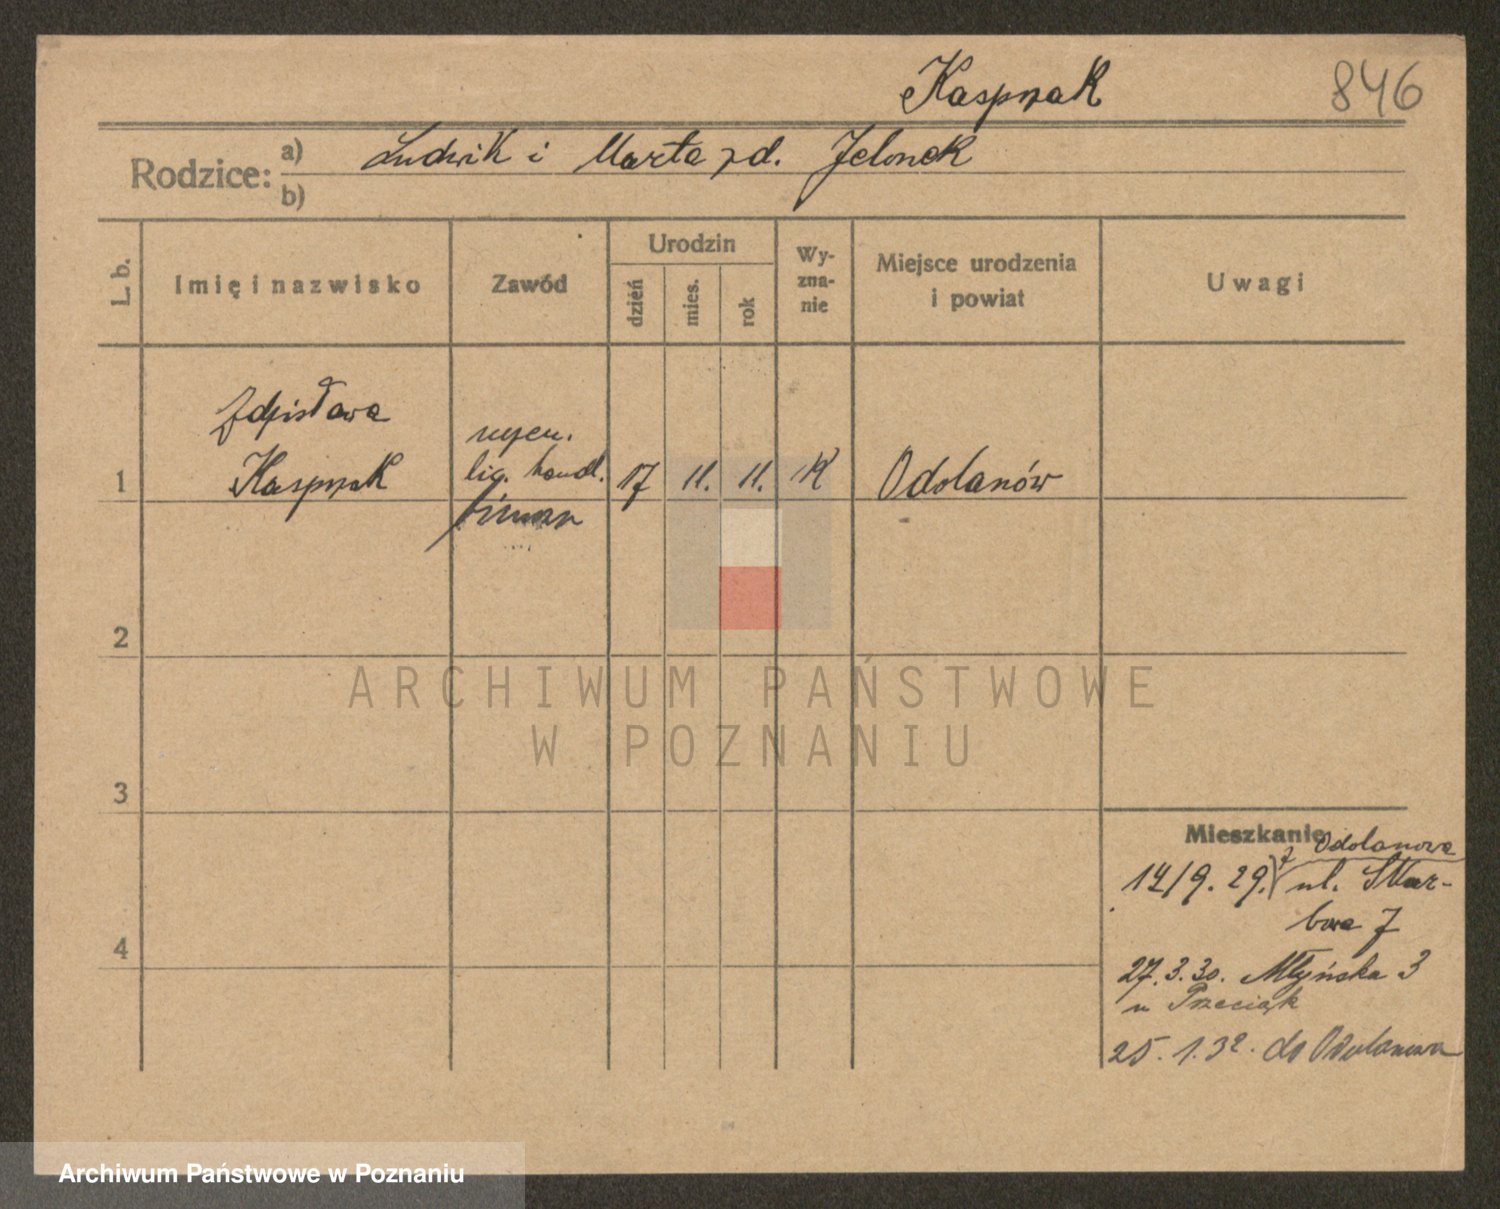 Kasprzak 846
Rodzice: a) Ludwik i Marta zd. Jelonek
b)
L. b. Imię i nazwisko Zawód Urodzin dzień mies. rok Wyznanie Miejsce urodzenia i powiat Uwagi
Zdzisława
uczen.
1 Kasprzak lic. handl. 17 11. 11. K Odolanów
2
3
4
ARCHIWUM PAŃSTWOWE
W POZNANIU
Mieszkanie
z Odolanowa
14/9. 29. ul. Skar-
bowa 7
27.3.30. Młyńska 3
u Przeciąk
25.1.32. do Odolanowa
Archiwum Państwowe w Poznaniu